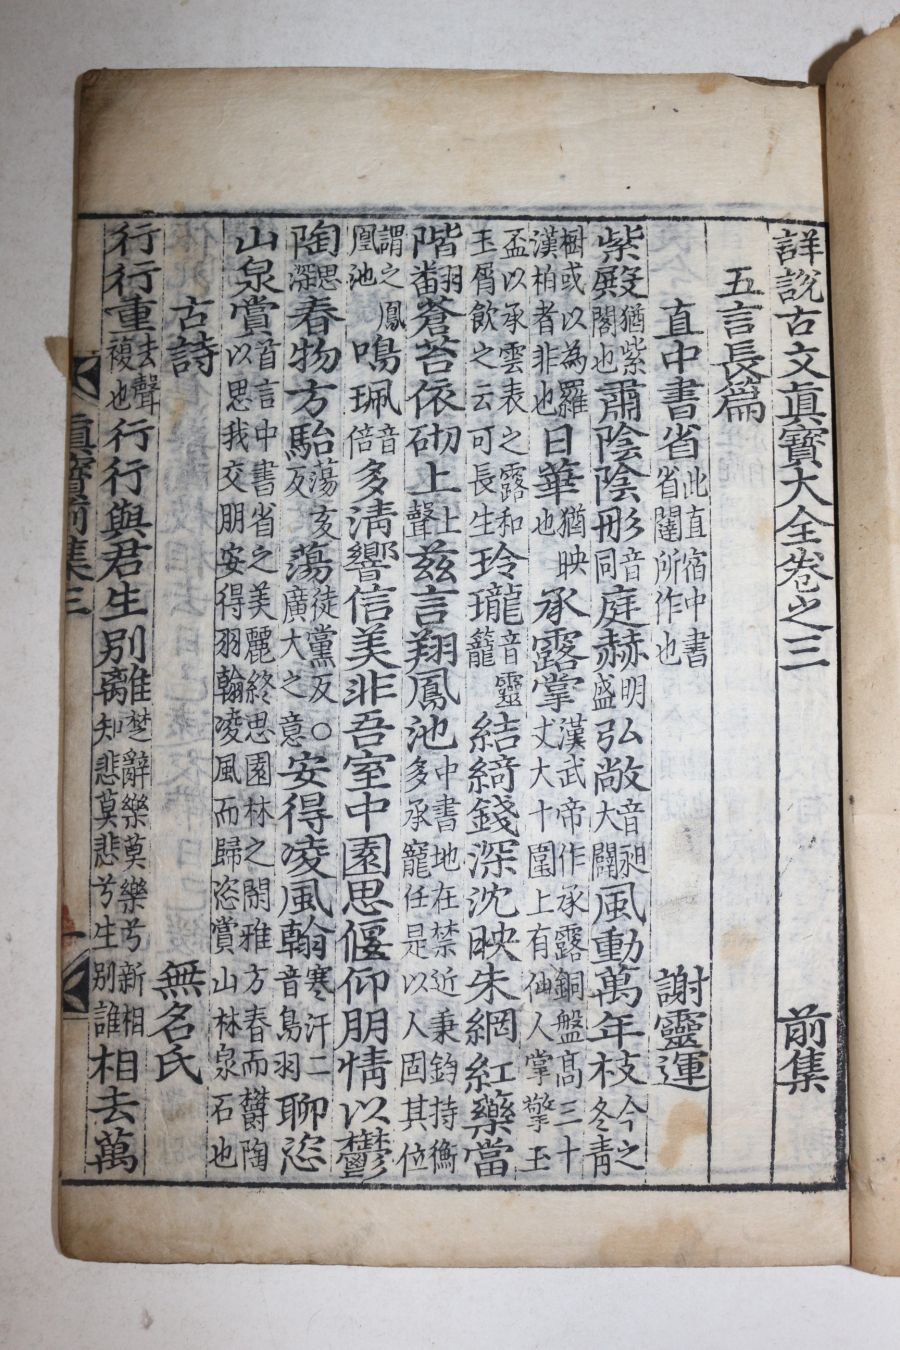 詳說古文眞寶大全卷之三 前集
五言長篇
直中書省此直宿中書省闥所作也 謝靈運
紫殿猶紫閣也肅陰陰彤音同庭赫明盛弘敞音昶大闢風動萬年枝今之冬青
樹或以為羅漢柏者非也日華猶映也承露掌漢武帝作承露銅盤高三十丈大十圍上有仙人掌擎玉
盃以承雲表之露和玉屑飮之云可長生玲瓏音靈籠結綺錢深沈映朱網紅藥當
階翻蒼苔依砌上上聲兹言翔鳳池中書地在禁近秉鈞持衡多承寵任是以人固其位
謂之鳳凰池鳴珮音倍多淸響信美非吾室中園思偃仰朋情以鬱
陶思深春物方駘蕩亥反蕩徒黨反○廣大之意安得凌風翰寒汗二音鳥羽聊恣
山泉賞首言中書省之美麗終思園林之閑雅方春而欝陶以思我交朋安得羽翰凌風而歸恣賞山林泉石也
古詩 無名氏
行行重去聲複也行行與君生別離楚辭樂莫樂兮新相知悲莫悲兮生別誰相去萬
眞寶前集三 一